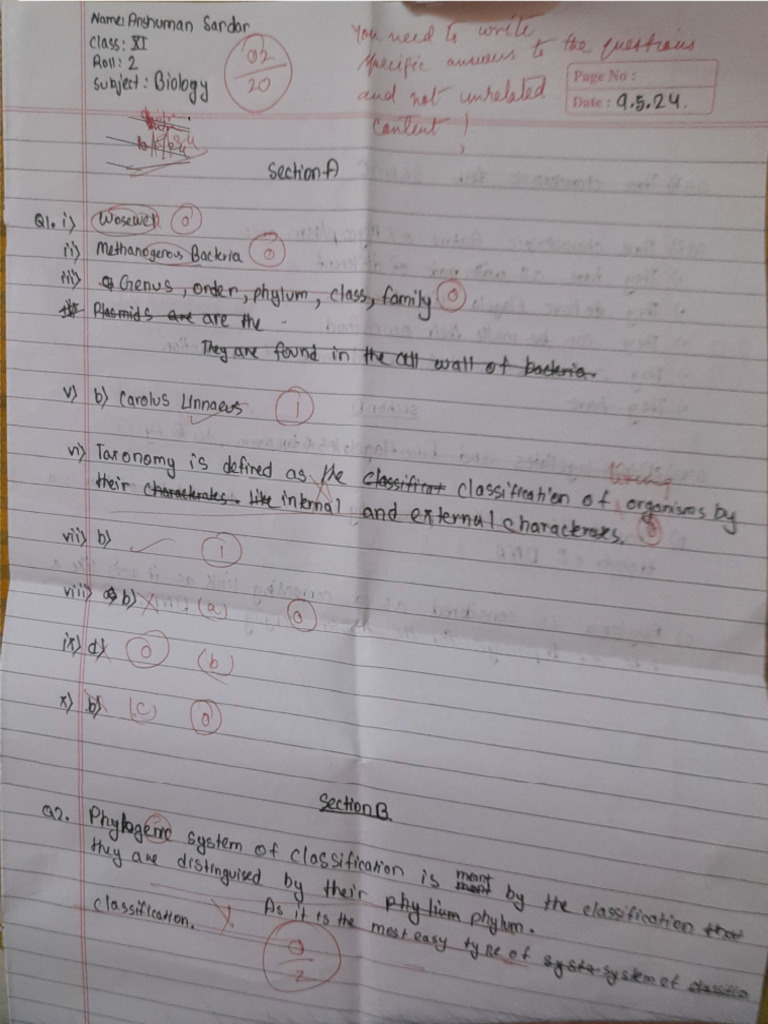 Name: Anshuman Sardar
Class: XI
Roll: 2
Subject: Biology
02
20
You need to write
specific answers to the questions
and not unrelated
content!
Page No :
Date : 9.5.24.
Section A
Q1. i) Wosewel 0
ii) Methanogerous Backria 0
iii) Genus, order, phylum, class, family 0
Plasmids are are the
They are found in the cell wall of backria.
v) b) Carolus Linnaeus 1
vi) Taxonomy is defined as the classificat classification of organisms by
their charackrates. like internal and external charackrates. 0
vii) b) 1
viii) b) (a) 0
ix) d) 0 (b)
x) b) (c) 0
Section B.
Q2. Phylogenic system of classification is meant by the classification that
they are distinguised by their phylium phylum.
As it is the most easy type of syste system of classifica
classification.
0
2